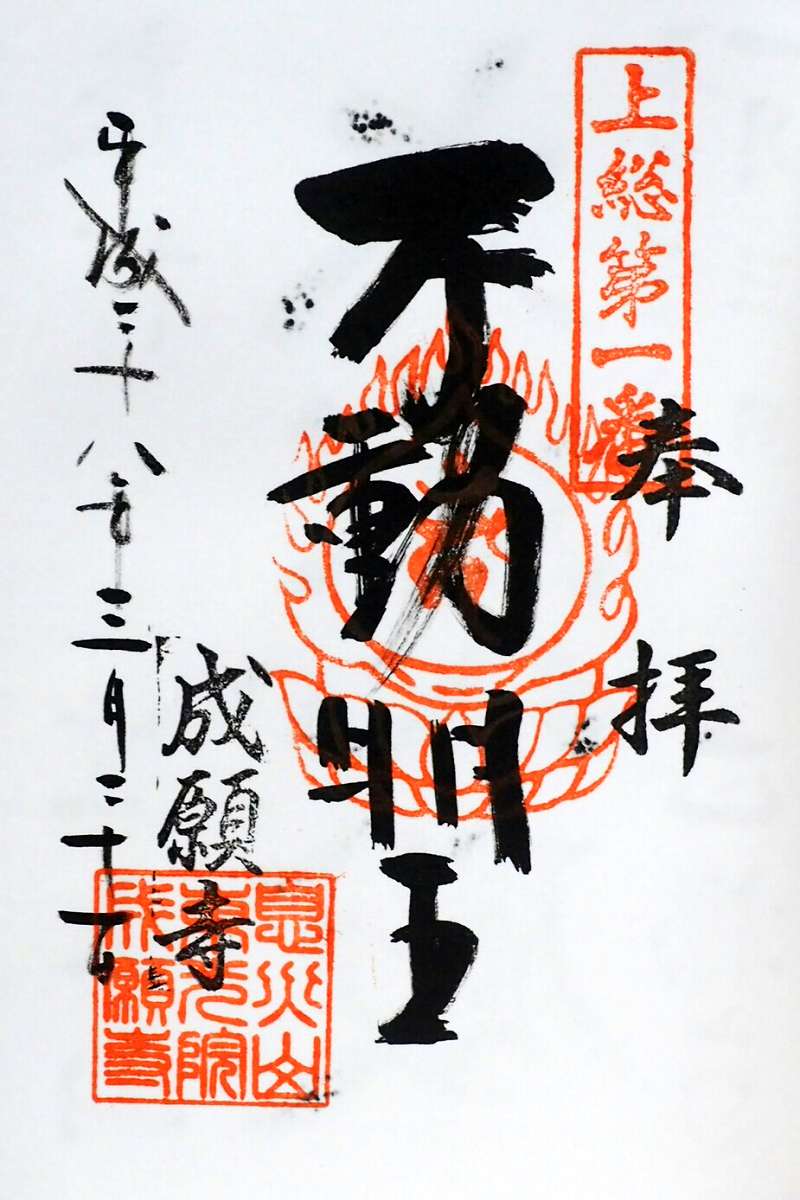 上総第一番
奉拝
不動明王
成願寺
平成二十八年三月二十一日
息災山
東光院
成願寺